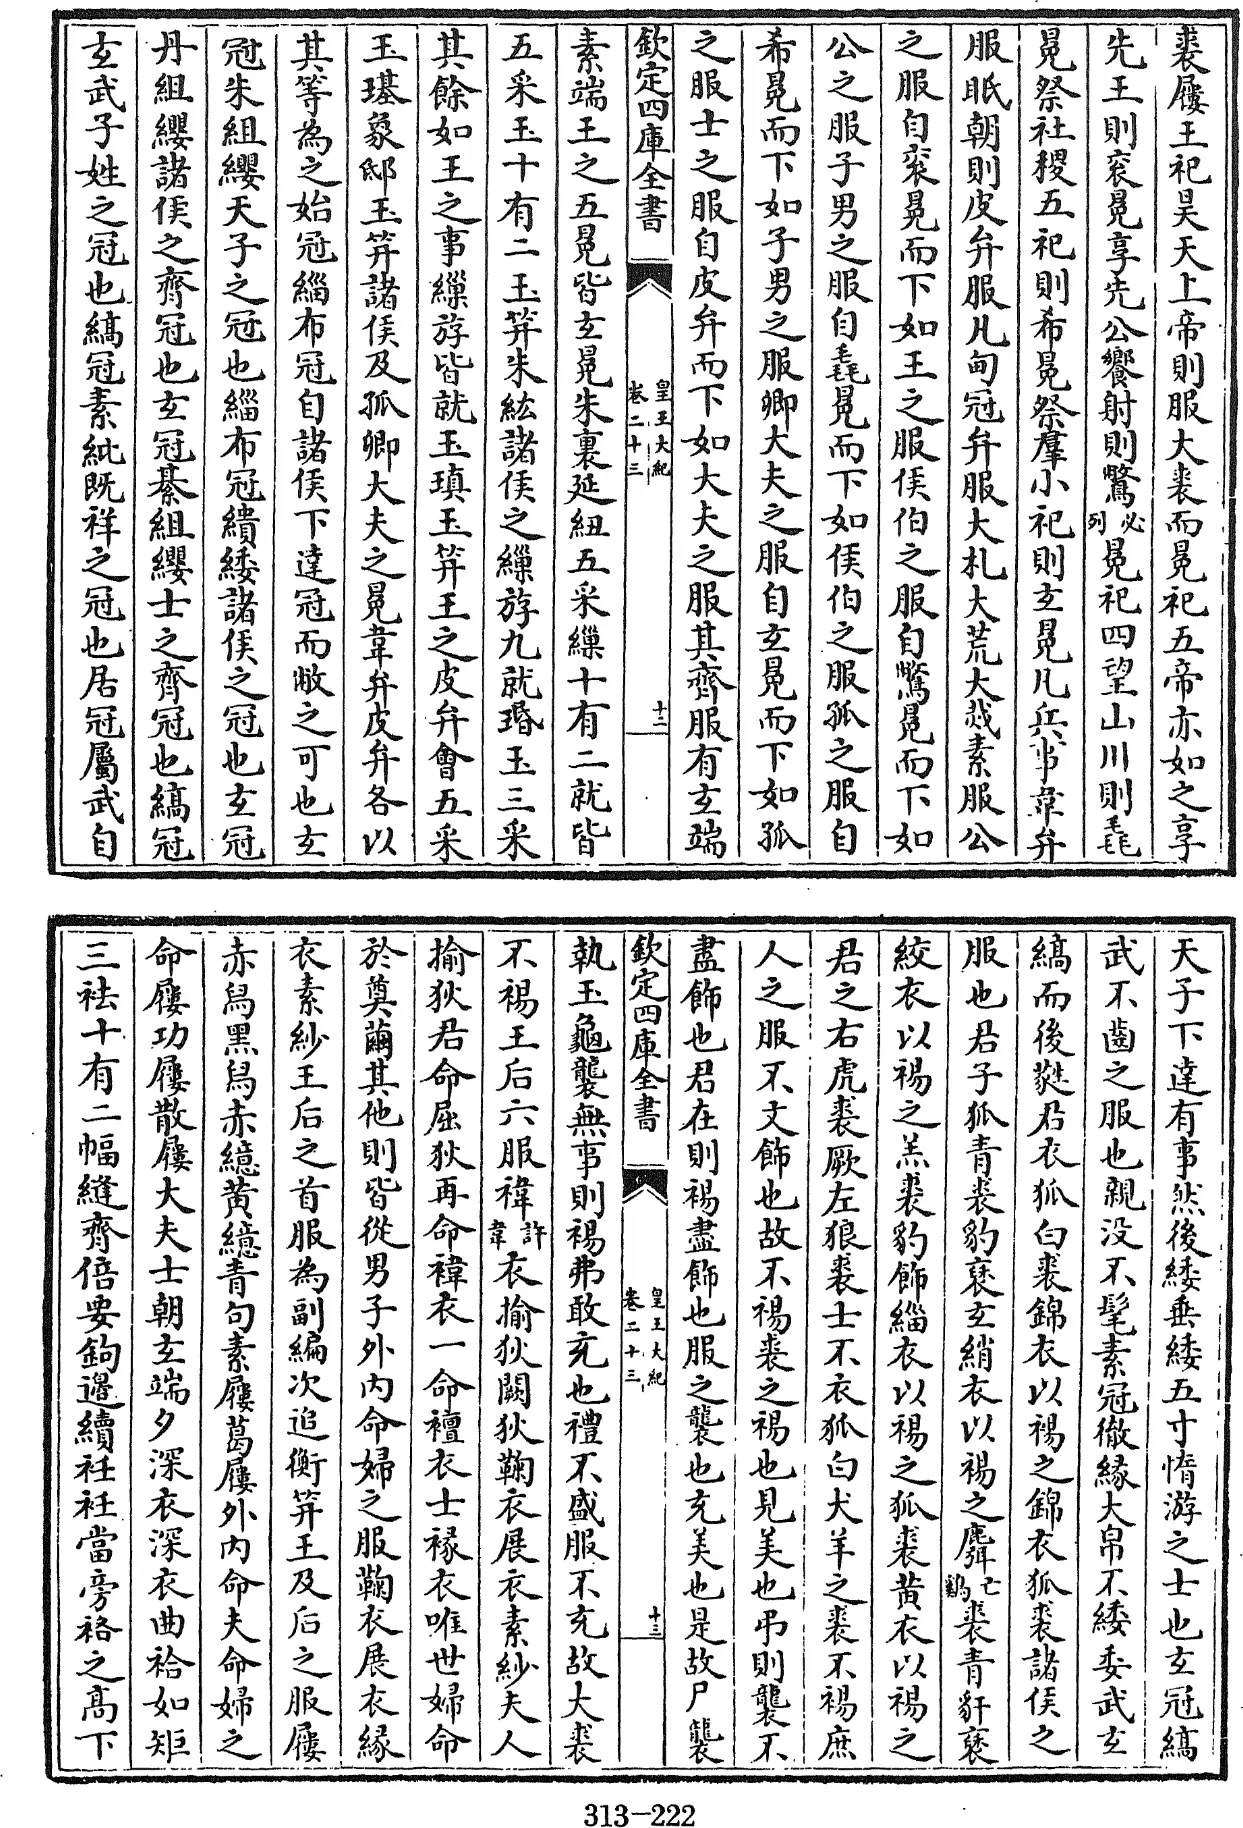 裘屨王祀昊天上帝則服大裘而冕祀五帝亦如之享
先王則衮冕享先公饗射則鷩必列冕祀四望山川則毳
冕祭社稷五祀則希冕祭羣小祀則玄冕凡兵事韋弁
服眡朝則皮弁服凡甸冠弁服大札大荒大烖素服公
之服自衮冕而下如王之服侯伯之服自鷩冕而下如
公之服子男之服自毳冕而下如侯伯之服孤之服自
希冕而下如子男之服卿大夫之服自玄冕而下如孤
之服士之服自皮弁而下如大夫之服其齊服有玄端
欽定四庫全書 皇王大紀 卷二十三 十二
素端王之五冕皆玄冕朱裏延紐五采繅十有二就皆
五采玉十有二玉笄朱紘諸侯之繅斿九就瑉玉三采
其餘如王之事繅斿皆就玉瑱玉笄王之皮弁會五采
玉璂象邸玉笄諸侯及孤卿大夫之冕韋弁皮弁各以
其等為之始冠緇布冠自諸侯下達冠而敝之可也玄
冠朱組纓天子之冠也緇布冠繢緌諸侯之冠也玄冠
丹組纓諸侯之齊冠也玄冠綦組纓士之齊冠也縞冠
玄武子姓之冠也縞冠素紕既祥之冠也居冠屬武自
天子下達有事然後緌垂緌五寸惰游之士也玄冠縞
武不齒之服也親没不髦素冠徹緣大帛不緌委武玄
縞而後蕤君衣狐白裘錦衣以裼之錦衣狐裘諸侯之
服也君子狐青裘豹褎玄綃衣以裼之麛亡鷄裘青豻褎
絞衣以裼之羔裘豹飾緇衣以裼之狐裘黄衣以裼之
君之右虎裘厥左狼裘士不衣狐白犬羊之裘不裼庶
人之服不文飾也故不裼裘之裼也見美也弔則襲不
盡飾也君在則裼盡飾也服之襲也充美也是故尸襲
欽定四庫全書 皇王大紀 卷二十三 十三
執玉龜襲無事則裼弗敢充也禮不盛服不充故大裘
不裼王后六服褘許韋衣揄狄闕狄鞠衣展衣素紗夫人
揄狄君命屈狄再命褘衣一命襢衣士褖衣唯世婦命
於奠繭其他則皆從男子外内命婦之服鞠衣展衣緣
衣素紗王后之首服為副編次追衡笄王及后之服屨
赤舄黑舄赤繶黄繶青句素屨葛屨外内命夫命婦之
命屨功屨散屨大夫士朝玄端夕深衣深衣曲袷如矩
三袪十有二幅縫齊倍要鉤邉續衽衽當旁袼之高下
313-222